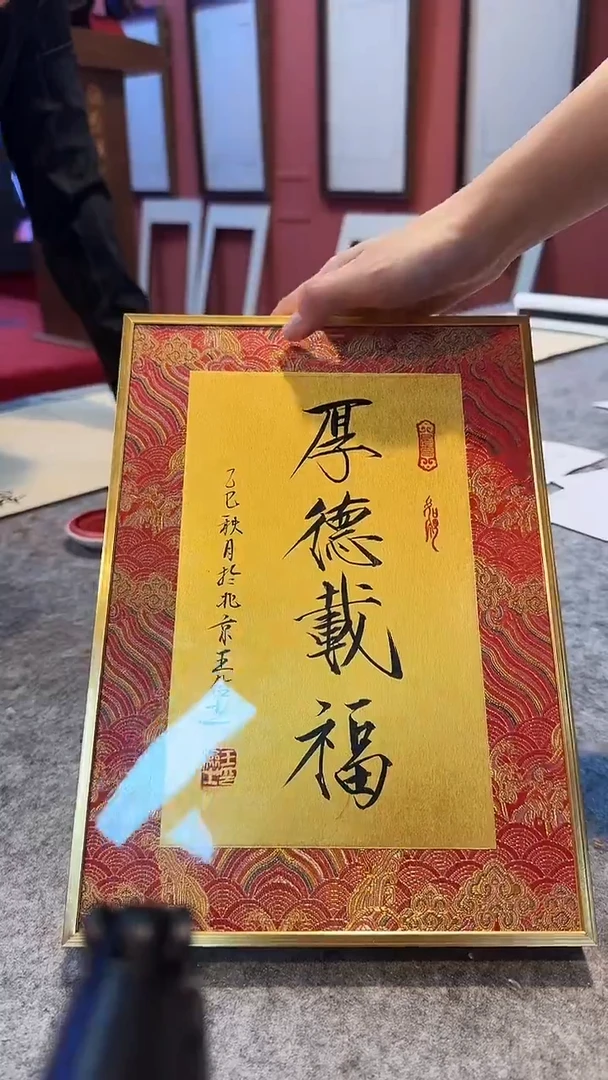 厚德載福
乙巳秋月於北京王